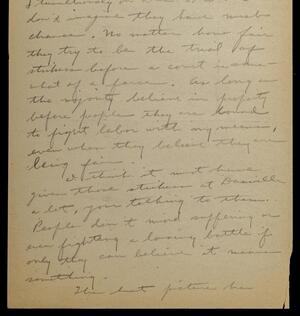 don't imagine they have much
chance. No matter how fair
they try to be the trial of
strikers before a court is some-
what of a farce. As long as
the majority believe in property
before people they are bound
to fight labor with any means,
even when they believe they are
being fair.
I think it must have
given those strikers at Danville
a lot, your talking to them.
People don't mind suffering or
even fighting a losing battle if
only they can believe it means
something.
The last picture he